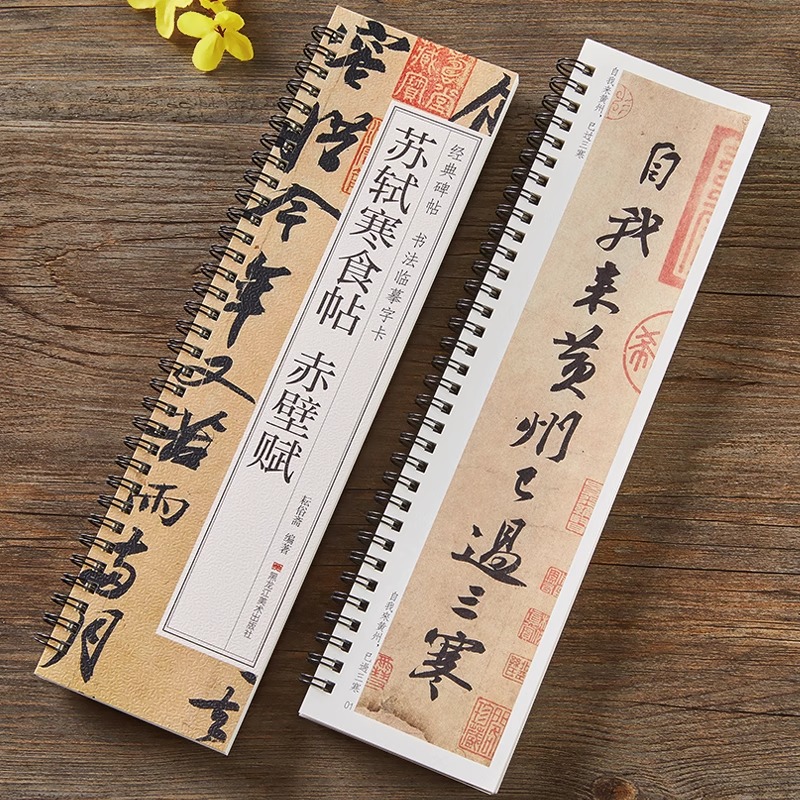 容惜今年又苦雨兩月
经典碑帖 书法临摹字卡
苏轼寒食帖 赤壁赋
耘俗斋 编著
黑龙江美术出版社
自我来黄州，已过三寒
自我来黄州已過三寒
自我来黄州，已过三寒
01